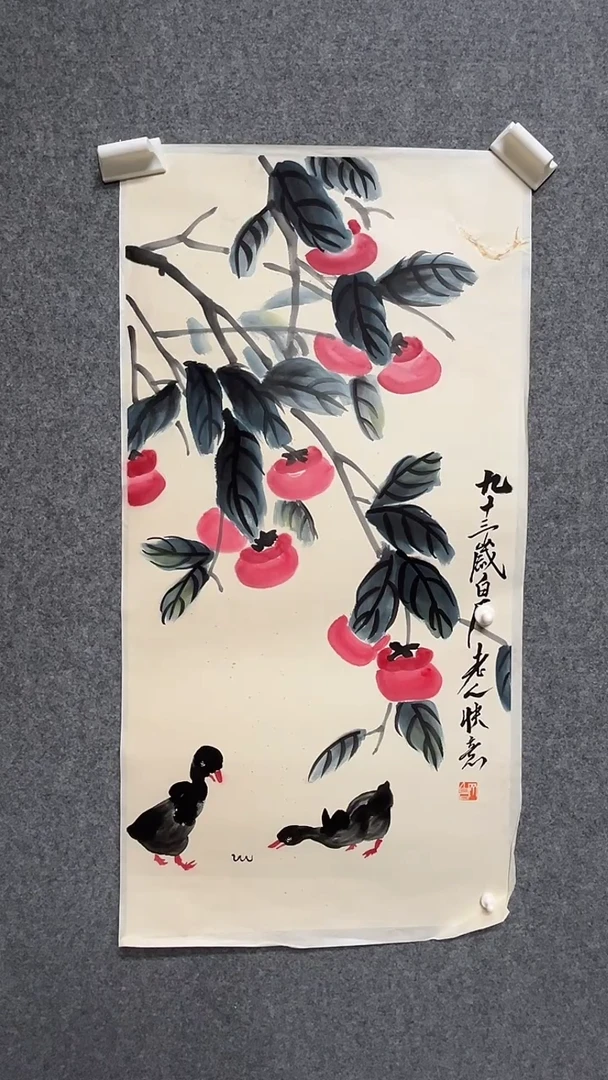 九十三岁白石老人快意